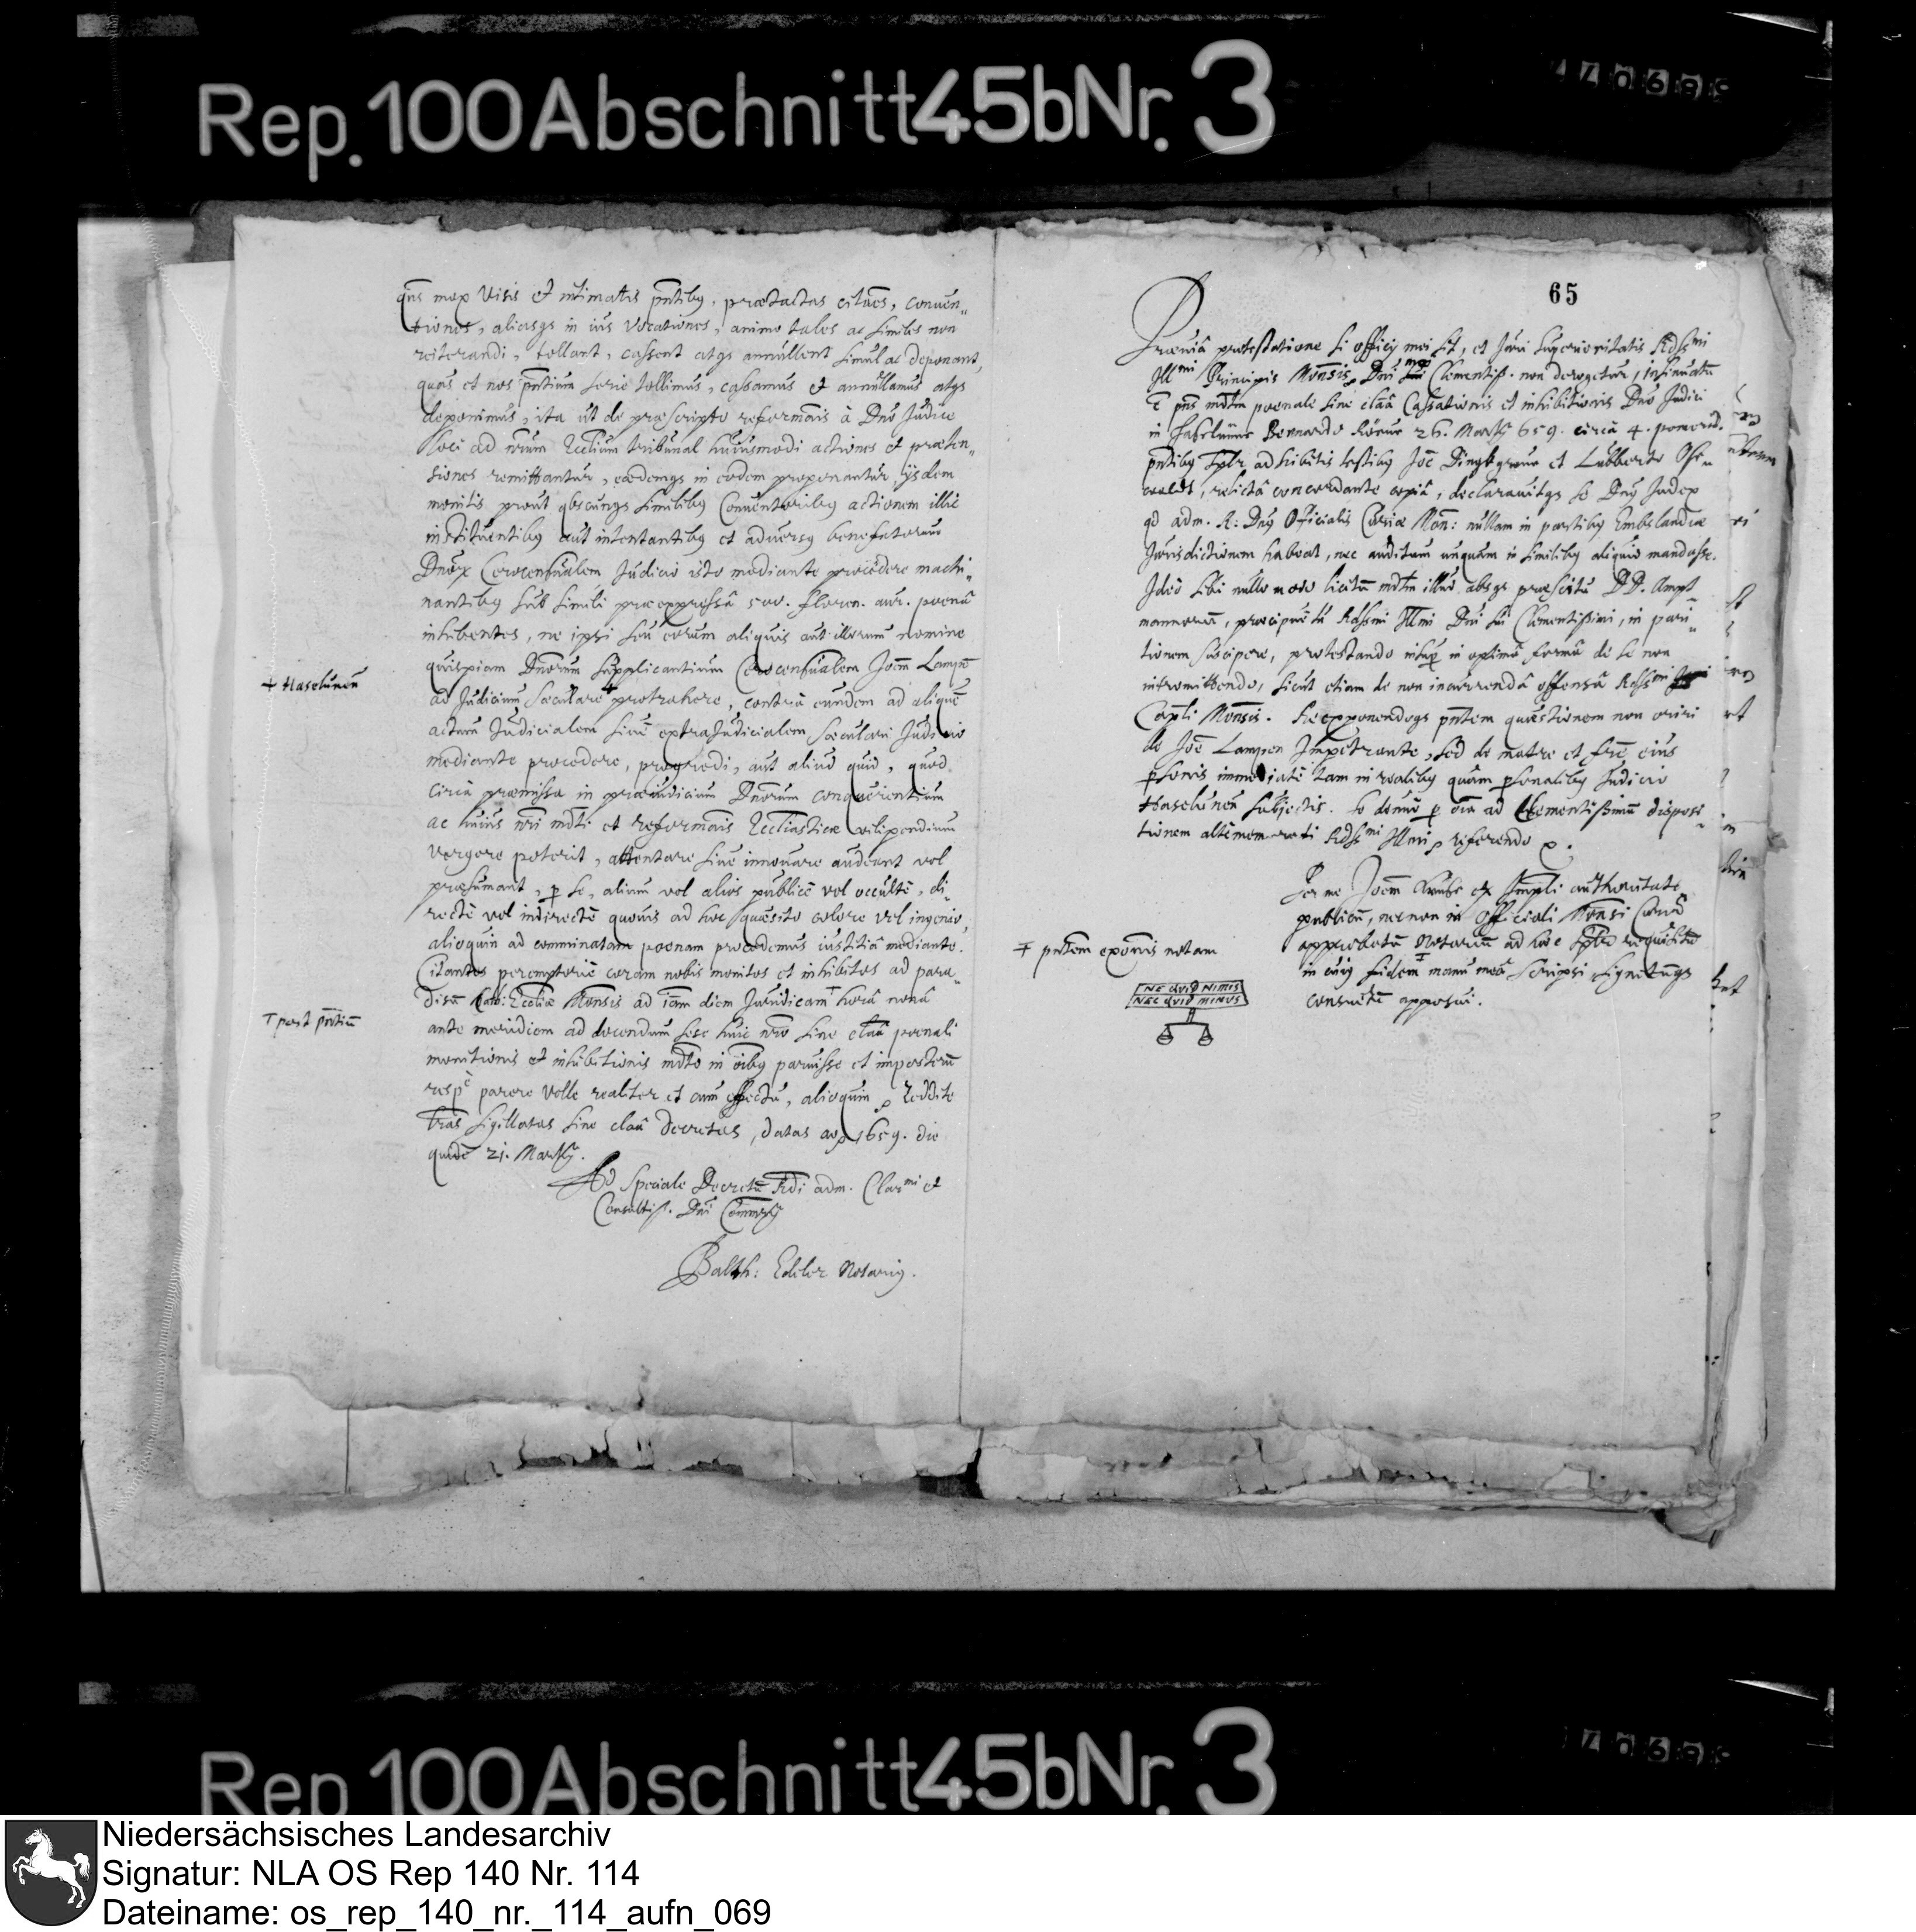 Rep. 100 Abschnitt 45b Nr. 3
qñs mox visis et intimatis pñtibꝫ, prætactas citãoẽs, conuen„
tiones, aliasqꝫ in ius vocationes, animo tales ac similes non
reiterandi, tollant, cassent atqꝫ annullent simul ac deponant,
quas et nos pñtium serie tollimus, cassamus et annullamus atqꝫ
deponimus, ita ut de præscripto reformãois à Dño Judice
loci ad nrum Eccliũm tribunal huiusmodi actiones et præten„
siones remittantur, eædemqꝫ in eodem proponantur, ijsdem
monitis prout qbscunqꝫ similibꝫ Conuentoribꝫ actionem illic
instituentibꝫ aut intentantibꝫ et aduersꝫ
Dnoꝝ Cerocensualem Judicio isto mediante procedere machi„
nantibꝫ sub simili præexpressâ 500. floren. aur. poenâ
inhibentes, ne ipsi seu eorum aliquis aut illorum nomine
quispiam Dnorum supplicantium Cerocensualem Joem̃ Lampẽ
ad Judicium sæculare + protrahere, contrà eundem ad aliquẽ
+ Haselunen̄
actum Judicialem siuè extraJudicialem sæculari Judicio
mediante procedere, progredi, aut aliud quid, quod
circà præmissa in præiudicium Dnorum conquerientium
ac huius nri mdti et reformãois Ecc̃liasticæ vilipendium
vergere poterit, attentare siue innouare audeant vel
præsumant, ꝑ se, alium vel alios publicè vel occultè, di„
rectè vel indirectè quouis ad hoc quæsito colore vel ingenio,
alioquin ad comminatam poenam procedemus iustitiâ mediante.
Citantes peremptoriè coram nobis monitos et inhibitos ad para„
disũ Cath: Eccliæ Monsis ad 1am diem Juridicam ⊤ horâ nonâ
⊤ post pñtiũ
ante meridiem ad docendum sese huic nro sine claã poenali
monitionis et inhibitionis mdto in oibꝫ paruisse et imposterũ
respè parere velle realiter et cum effectu, alioquin ꝑ Reddite
lras sigillatas sine claã Decretas, datas aõ 1659. die
quidẽ 21. Martij.
Ad speciale Decretũ Rdi adm. Clarmi et
Consultiss. Dni Commrij
Balth: Edeler Notariꝫ.
65
Præuiâ protestatione si officij mei sit, et Juri superioritatis Rdssmi
Illmi Principis Monsis, Dni mei Clementiss. non derogetur, Insinuatũ
ẽ pñs mdtm poenale sine claã Cassationis et inhibitionis Dno Judici
in Haselünne Bernardo 26. Martij 659. circà 4. pomerid.
pñtibꝫ splr adhibitis testibꝫ Joẽ Dingkgreue et Lubberto Osen
waldt, relictâ concordante copiâ, declarauitqꝫ se Dnꝫ Judex
qd adm. R: Dnꝫ Officialis Curiæ Mon: nullam in partibꝫ Embslandiæ
Jurisdictionem habeat, nec auditum unquam in similibꝫ aliquid mandasse.
Ideò sibi nullo modo licitũ mdtm illud absqꝫ præscitu DD. Ampt„
mannorũ, præcipuè tũ Rdssmi Illmi Dni sui Clementissimi, in pari„
tionem suscipere, protestando insuꝑ in optimâ formâ de se non
intromittendo, sicut etiam de non incurrendâ offensâ Rdssmi
Capli Monsis. Reexponendoqꝫ pñtem quæstionem non oriri
de Joẽ Lampen Impetrante, sed de matre et frẽ eius
ꝑsonis immediatè tam in realibꝫ quàm ꝑsonalibꝫ Judicio
Haselünen̄ subjectis. se demũ ꝑ oĩa ad Clementissimũ disposi„
tionem altèmemorati Rdssmi Illmi ꝑ referendo ꝛc.
Per me Joẽm ex Impli authoritate
publicũ, necnon in Officiali Monsi Curiâ
approbatũ Notariũ ad hoc splr requisitũ
in cuiꝫ fidem ‡ manu meâ scripsi signetũqꝫ
‡ pñtem exonis notam
consuetũ apposui.
NE QVID NIMIS
NEC QVID MINUS
Rep 100 Abschnitt 45b Nr. 3
Niedersächsisches Landesarchiv
Signatur: NLA OS Rep 140 Nr. 114
Dateiname: os_rep_140_nr._114_aufn_069